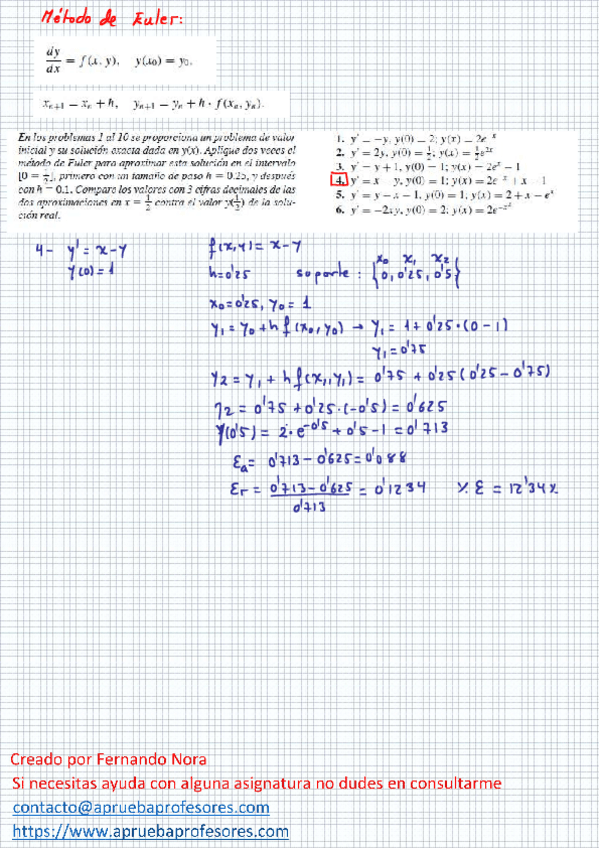 Método de Euler:
dy/dx = f(x, y), y(x₀) = y₀,
xₙ₊₁ = xₙ + h, yₙ₊₁ = yₙ + h · f(xₙ, yₙ).
En los problemas 1 al 10 se proporciona un problema de valor
inicial y su solución exacta dada en y(x). Aplique dos veces el
método de Euler para aproximar esta solución en el intervalo
[0 = ½], primero con un tamaño de paso h = 0.25, y después
con h = 0.1. Compare los valores con 3 cifras decimales de las
dos aproximaciones en x = ½ contra el valor y(½) de la solu-
ción real.
1. y' = −y, y(0) = 2; y(x) = 2e⁻ˣ
2. y' = 2y, y(0) = ½; y(x) = ½e²ˣ
3. y' = y + 1, y(0) = 1; y(x) = 2eˣ − 1
4. y' = x − y, y(0) = 1; y(x) = 2e⁻ˣ + x − 1
5. y' = y − x − 1, y(0) = 1; y(x) = 2 + x − eˣ
6. y' = −2xy, y(0) = 2; y(x) = 2e^(−x²)
4- y' = x-y
y(0) = 1
f(x,y) = x-y
h=0'25 soporte: {0, 0'25, 0'5}
x0 x1 x2
x0=0'25, y0 = 1
y1 = y0 + h f(x0, y0) → y1 = 1 + 0'25·(0-1)
y1 = 0'75
y2 = y1 + h f(x1, y1) = 0'75 + 0'25(0'25-0'75)
y2 = 0'75 + 0'25·(-0'5) = 0'625
y(0'5) = 2·e^(-0'5) + 0'5-1 = 0'713
Ea = 0'713-0'625 = 0'088
Er = (0'713-0'625)/0'713 = 0'1234 % E = 12'34%
Creado por Fernando Nora
Si necesitas ayuda con alguna asignatura no dudes en consultarme
contacto@apruebaprofesores.com
https://www.apruebaprofesores.com